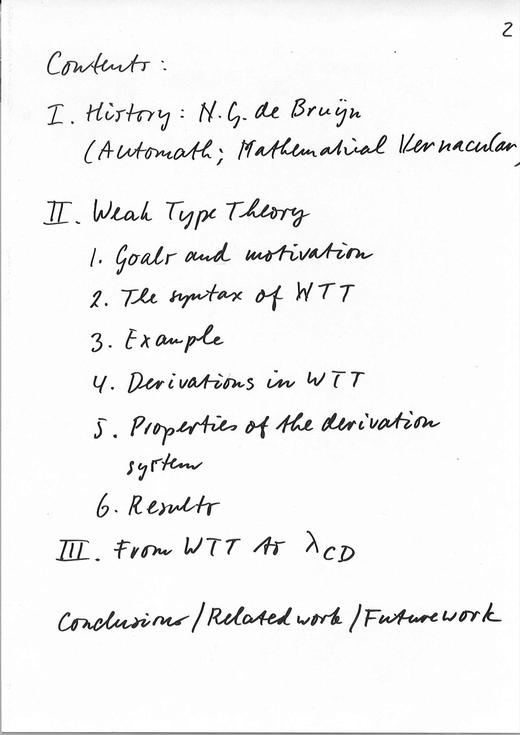 2
Contents:
I. History: N.G. de Bruijn
(Automath; Mathematical Vernacular)
II. Weak Type Theory
1. Goals and motivation
2. The syntax of WTT
3. Example
4. Derivations in WTT
5. Properties of the derivation
system
6. Results
III. From WTT to λCD
Conclusions/Related work/Future work